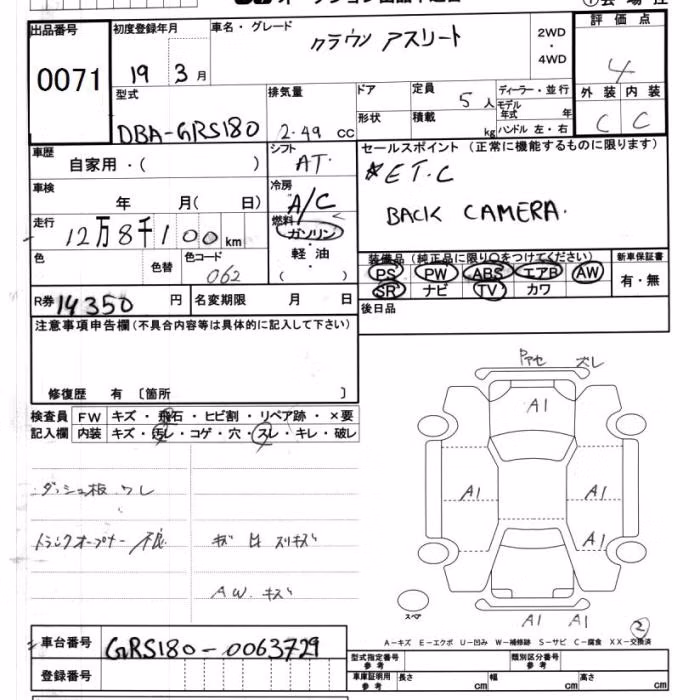 出品番号 初度登録年月 車名・グレード 2WD ・ 4WD 評価点
0071 19 3月 クラウン アスリート 4
型式 排気量 ドア 定員 5人 ディーラー・並行 外装 内装
DBA-GRS180 2.49 cc 形状 積載 kg モデル年式 年 C C
ハンドル 左・右
車歴 自家用・( ) シフト AT. セールスポイント (正常に機能するものに限ります)
車検 年 月( 日) 冷房 A/C *ETC
走行 12万8千100km 燃料 ガソリン BACK CAMERA.
軽油
( )
色 色替 色コード 062 装備品 (純正品に限り○をつけてください) 新車保証書
PS PW ABS エアB AW 有・無
SR ナビ TV カワ
R券 14350 円 名変期限 月 日 後日品
注意事項申告欄(不具合内容等は具体的に記入して下さい)
修復歴 有 〔箇所 〕
検査員 FW キズ・飛石・ヒビ割・リペア跡・×要
記入欄 内装 キズ・汚レ・コゲ・穴・スレ・キレ・破レ
ダッシュ板 ワレ
トランクオープナー 不良 キズ スリキズ
A.W. キズ
ズレ
A1
A1 A1
A1
A1 A1
スペア
2
A-キズ E-エクボ U-凹み W-補修跡 S-サビ C-腐食 XX-交換済
車台番号 GRS180-0063729
登録番号
型式指定番号 参考 類別区分番号 参考
車庫証明用 参考 長さ cm 幅 cm 高さ cm